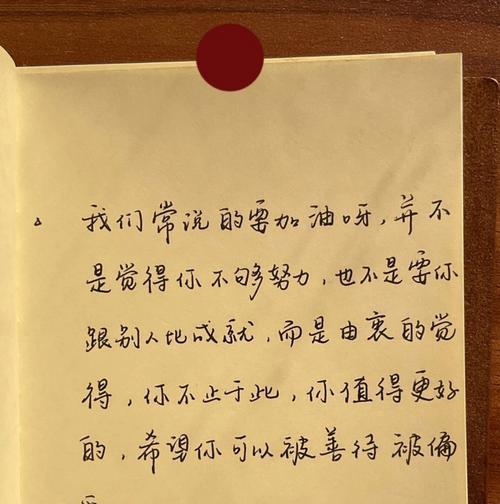 我们常说的要加油呀，并不
是觉得你不够努力，也不是要你
跟别人比成就，而是由衷的觉
得，你不止于此，你值得更好
的，希望你可以被善待 被偏